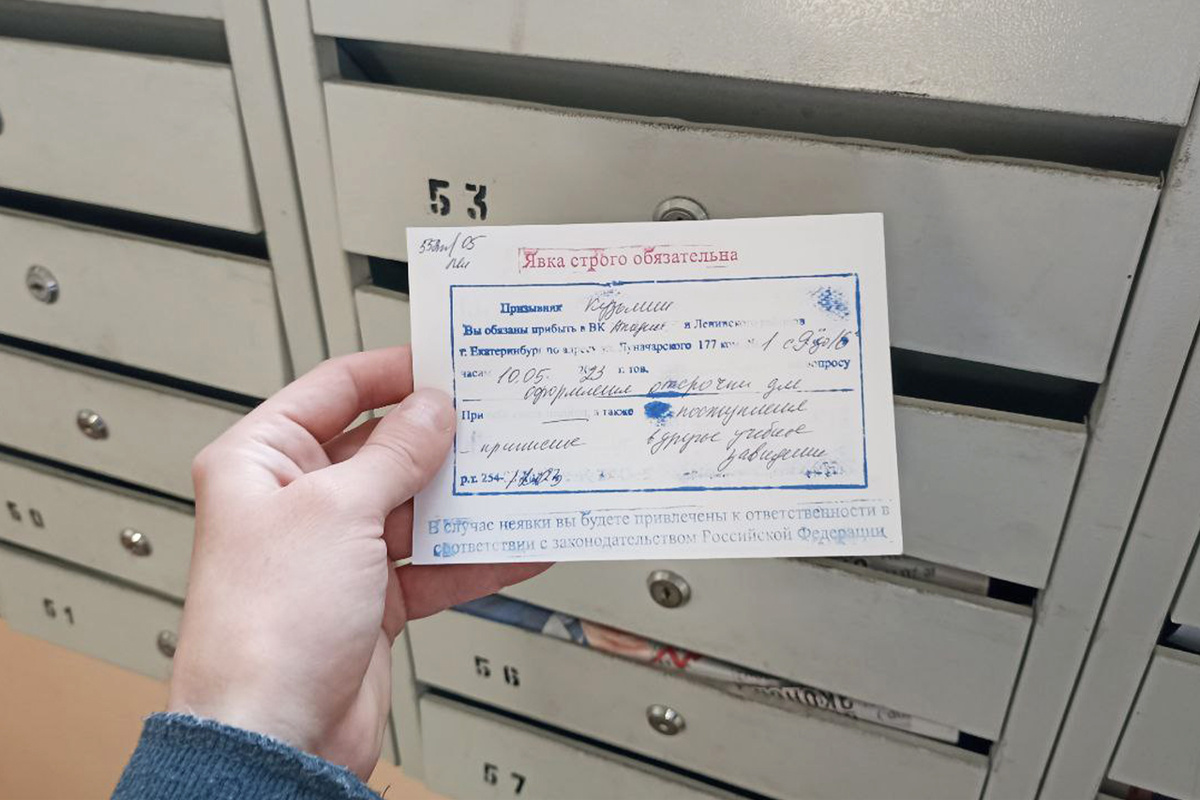 53
Явка строго обязательна
Призывник Кузьмин
Вы обязаны прибыть в ВК и Ленинского
г. Екатеринбург по адресу ул. Луначарского 177 ком. № 1 с 9 до 16
часам 10.05. 23 г. вопросу
оформления отсрочки для
При а также поступления
приписное в другое учебное
заведение
р.т. 254-
В случае неявки вы будете привлечены к ответственности в
соответствии с законодательством Российской Федерации
50
51
56
57